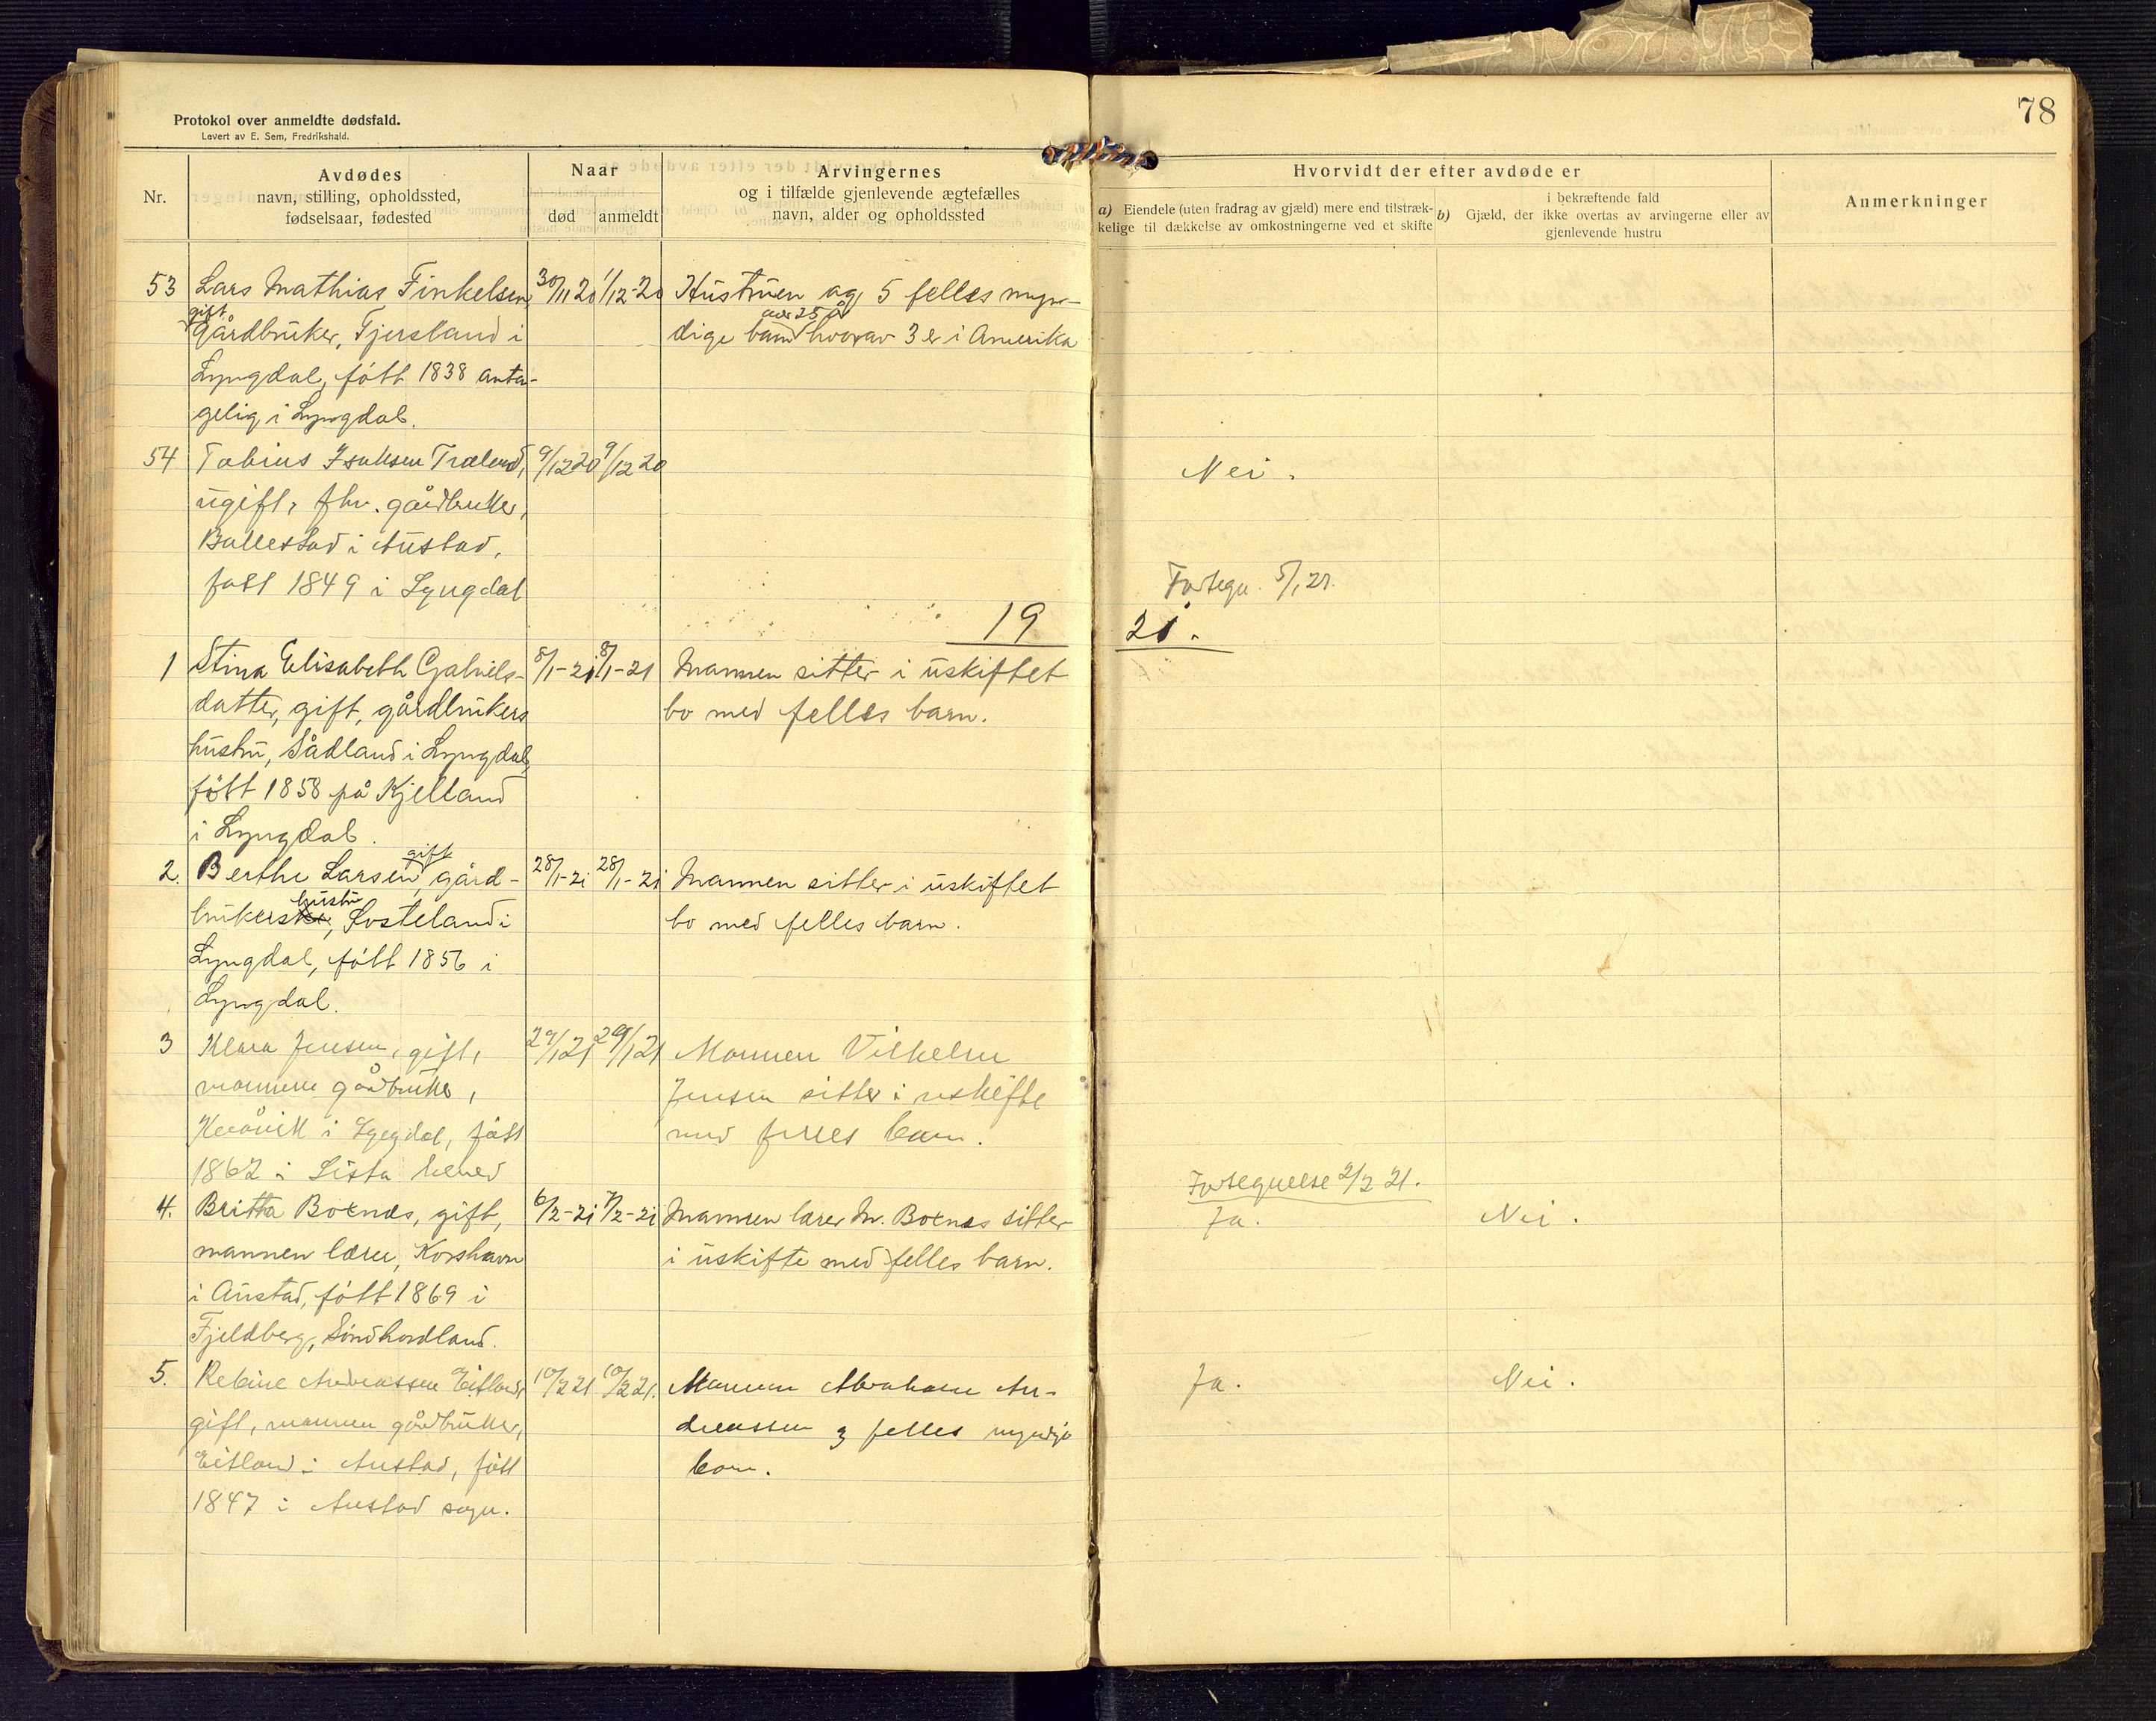 78
Protokol over anmeldte dødsfald.
Levert av E. Sem, Fredrikshald.
Nr.
Avdødes
navn, stilling, opholdssted,
fødselsaar, fødested
Naar
død
anmeldt
Arvingernes
og i tilfælde gjenlevende ægtefælles
navn, alder og opholdssted
Hvorvidt der efter avdøde er
a) Eiendele (uten fradrag av gjæld) mere end tilstræk-
kelige til dækkelse av omkostningerne ved et skifte
b) Gjæld, der
i bekræftende fald
ikke overtas av arvingerne eller av
gjenlevende hustru
Anmerkninger
53 Lars Mathias Finkelsen, 30/11 20 1/12-20 Hustruen og 5 felles myn-
gift
gårdbruker, Fjersland i
over 25 år
dige barn hvorav 3 er i Amerika
Lyngdal, født 1838 anta-
gelig i Lyngdal.
54 Tobias Isaksen Træland, 9/12 20 9/12 20 Nei.
ugift, fhv. gårdbruker,
Ballestad i Austad,
født 1849 i Lyngdal
Fortegn. 5/1 21.
19 21.
1 Stina Elisabeth Gabriels- 8/1-21 8/1-21 Mannen sitter i uskiftet
datter, gift, gårdbrukers bo med felles barn.
hustru, Sådland i Lyngdal,
født 1858 på Kjelland
i Lyngdal.
gift
2. Berthe Larsen, gård- 28/1-21 28/1-21 Mannen sitter i uskiftet
hustru
brukers, Losteland i bo med felles barn.
Lyngdal, født 1856 i
Lyngdal.
3 Klara Jensen, gift, 29/1 21 29/1 21 Mannen Vilhelm
mannen gårdbruker, Jensen sitter i uskifte
i Lyngdal, født med felles barn.
1862 i Lista herred
Fortegnelse 2/2 21.
4. Britta Boenæs, gift, 6/2-21 7/2-21 Mannen lærer M. Boenæs sitter Ja. Nei.
mannen lærer, Korshavn i uskifte med felles barn.
i Austad, født 1869 i
Fjeldberg, Søndhordland.
5. Rebine Andreassen Eitland, 10/2 21 10/2 21. Mannen Abraham An- Ja. Nei.
gift, mannen gårdbruker, dreassen 3 felles myndige
Eitland i Austad, født barn.
1847 i Austad sogn.